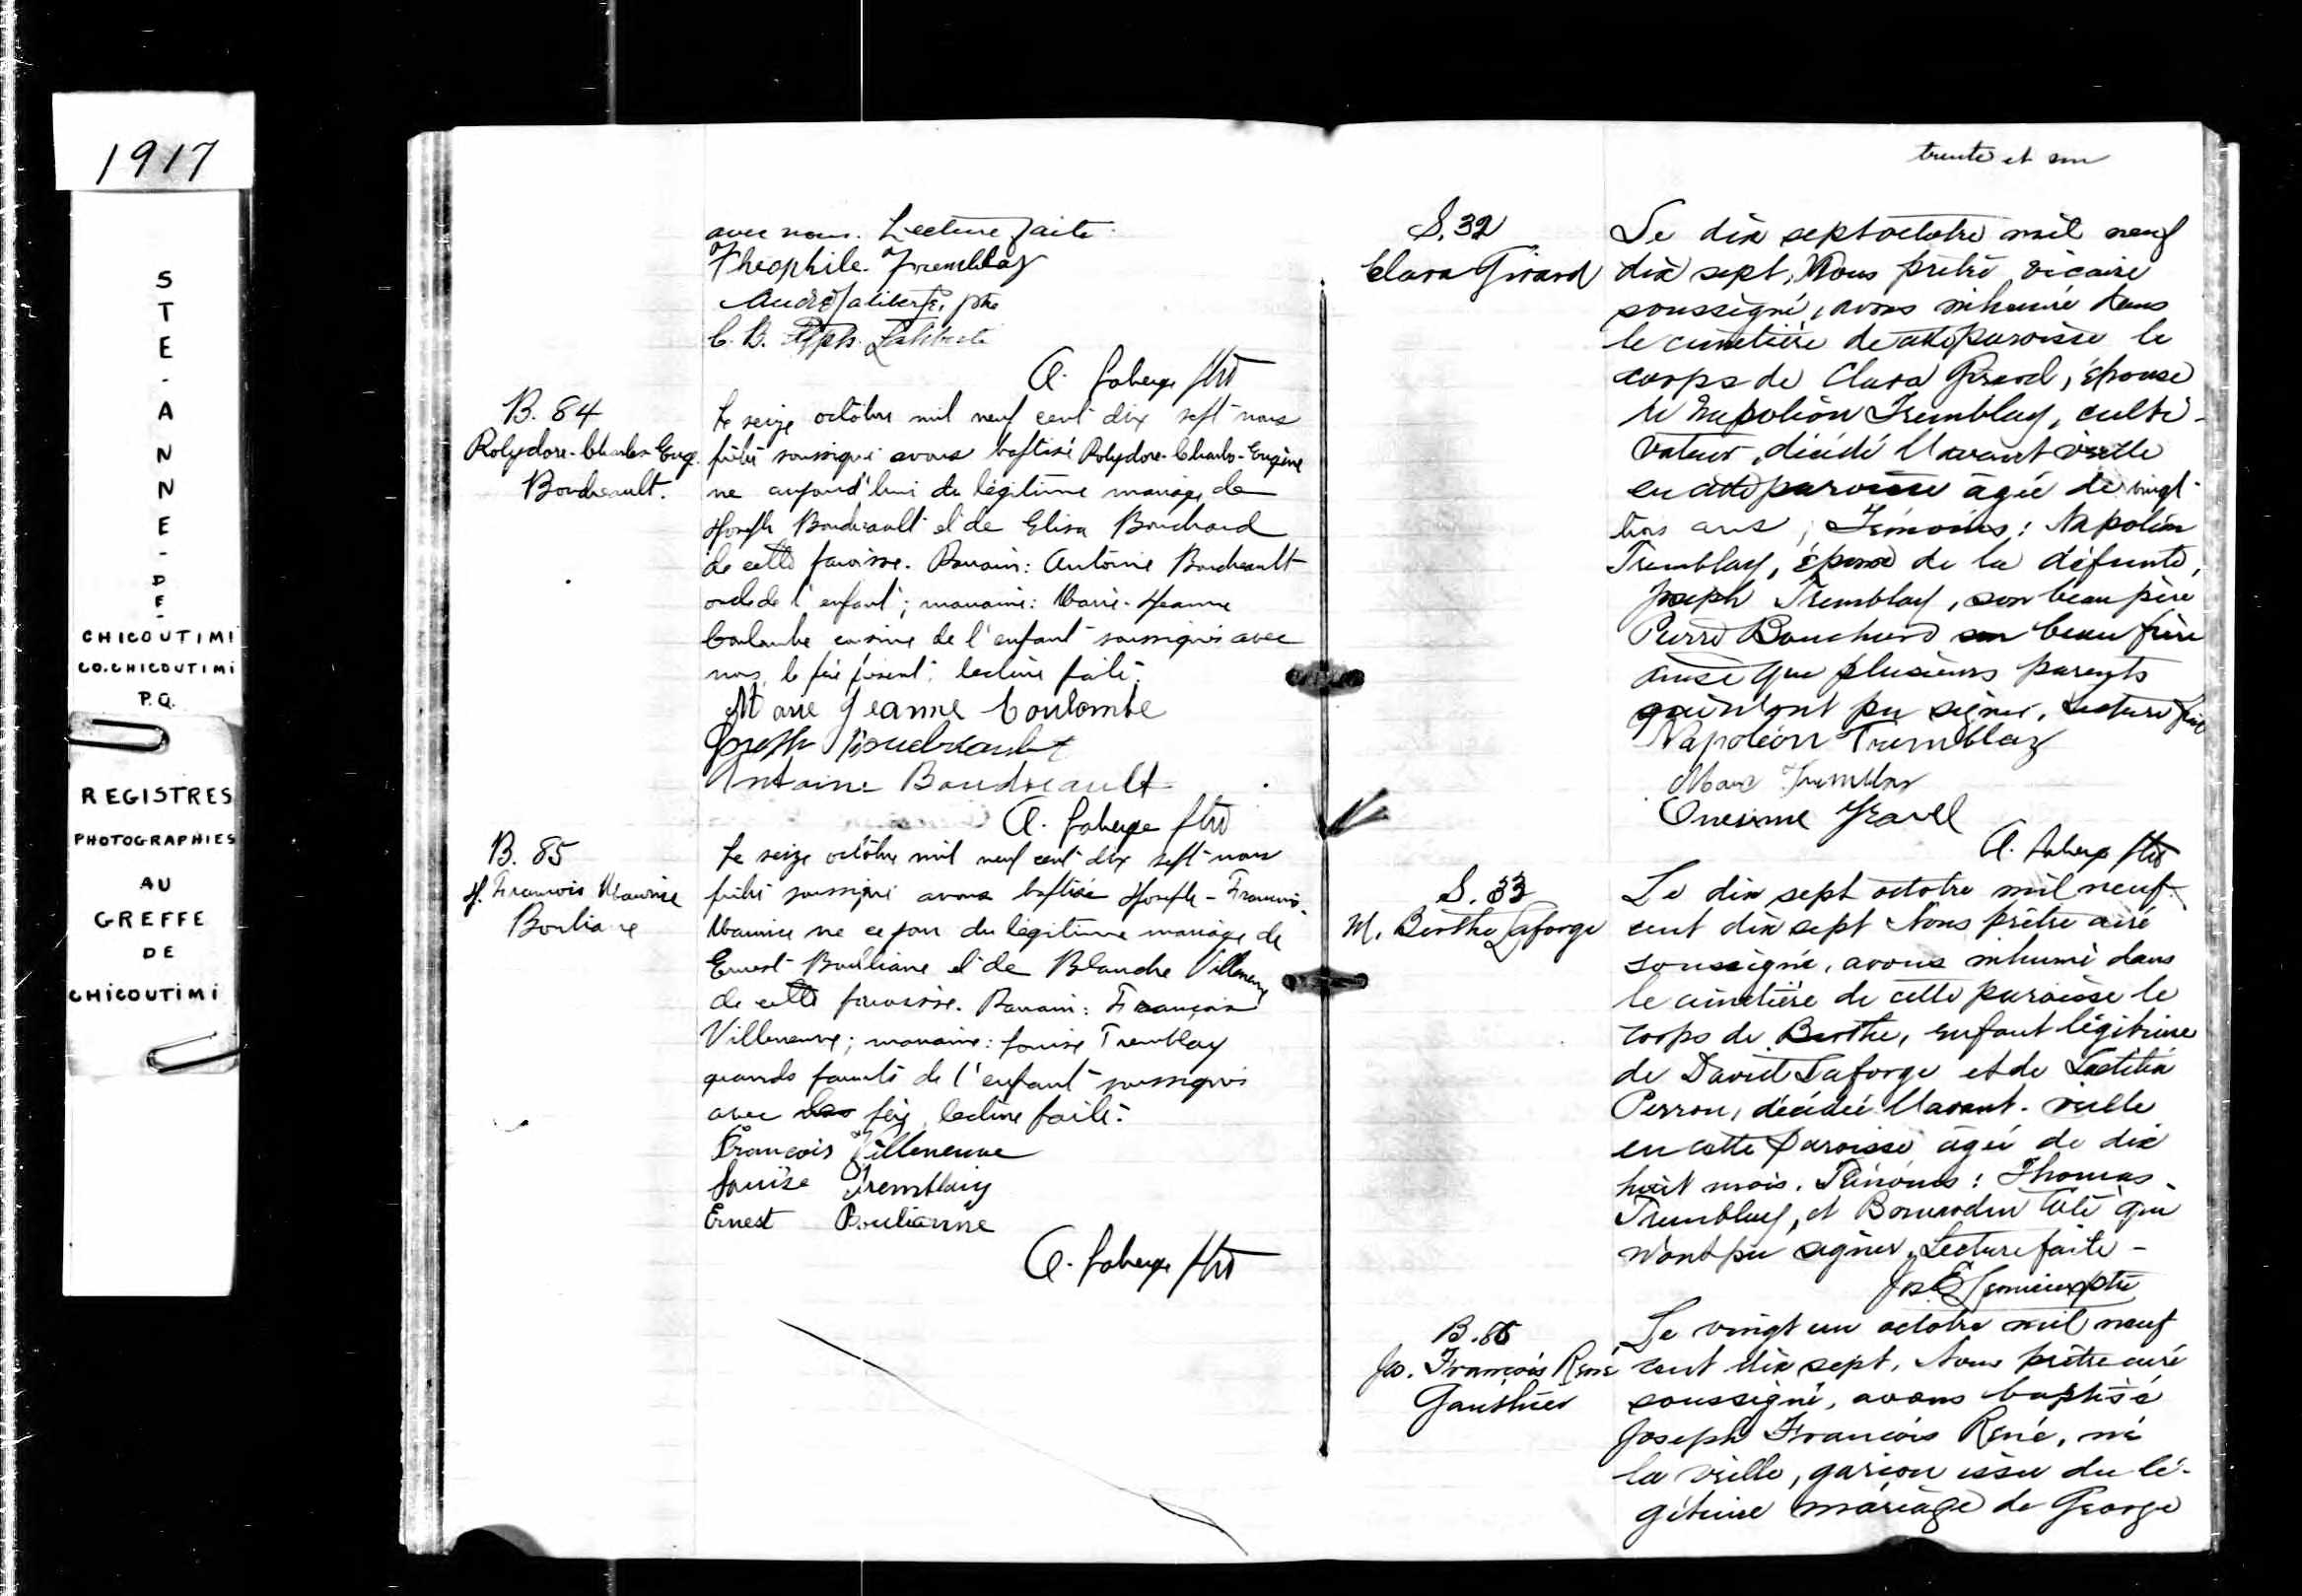 1917
STE-ANNE-DE-
CHICOUTIMI
CO.CHICOUTIMI
P.Q.
REGISTRES
PHOTOGRAPHIES
AU
GREFFE
DE
CHICOUTIMI
avec nous. Lecture faite.
Théophile Tremblay
André Laliberté, ptre
A. Laberge ptre
B. 84
Polydore-Charles-Eug.
Boudreault.
Le seize octobre mil neuf cent dix sept nous
prêtre soussigné avons baptisé Polydore-Charles-Eugène
né aujourd'hui du légitime mariage de
Joseph Boudreault et de Elisa Bouchard
de cette paroisse. Parrain: Antoine Boudreault
oncle de l'enfant; marraine: Marie-Jeanne
Coulombe cousine de l'enfant soussignés avec
nous, le père présent. lecture faite.
Marie Jeanne Coulombe
Joseph Boudreault
Antoine Boudreault
A. Laberge ptre
B. 85
J. François Maurice
Bouliane
Le seize octobre mil neuf cent dix sept nous
prêtre soussigné avons baptisé Joseph-François-
Maurice né ce jour du légitime mariage de
Ernest Bouliane et de Blanche Villeneuve
de cette paroisse. Parrain: François
Villeneuve; marraine: Louise Tremblay
grands parents de l'enfant soussignés
avec père, lecture faite.
François Villeneuve
Louise Tremblay
Ernest Boulianne
A. Laberge ptre
trente et un
S. 32
Clara Girard
Le dix sept octobre mil neuf
dix sept, Nous prêtre vicaire
soussigné, avons inhumé dans
le cimetière de cette paroisse le
corps de Clara Girard, épouse
de Napoléon Tremblay, culti-
vateur, décédé l'avant veille
en cette paroisse âgée de vingt
trois ans, Témoins: Napoléon
Tremblay, époux de la défunte,
Joseph Tremblay, son beau père
Pierre Bouchard son beau frère
ainsi que plusieurs parents
qui n'ont pu signer. Lecture faite
Napoléon Tremblay
Marc Tremblay
Onesime Gravel
A. Laberge ptre
S. 33
M. Berthe Laforge
Le dix sept octobre mil neuf
cent dix sept Nous prêtre curé
soussigné, avons inhumé dans
le cimetière de cette paroisse le
corps de Berthe, enfant légitime
de David Laforge et de Laetitia
Perron, décédée l'avant-veille
en cette Paroisse âgée de dix
huit mois. Témoins: Thomas
Tremblay, et Côté qui
n'ont pu signer, Lecture faite -
Jos. E. Lemieux ptre
B. 86
Js. François René
Gauthier
Le vingt un octobre mil neuf
cent dix sept, Nous prêtre curé
soussigné, avons baptisé
Joseph François René, né
la veille, garçon issu du lé-
gitime mariage de George